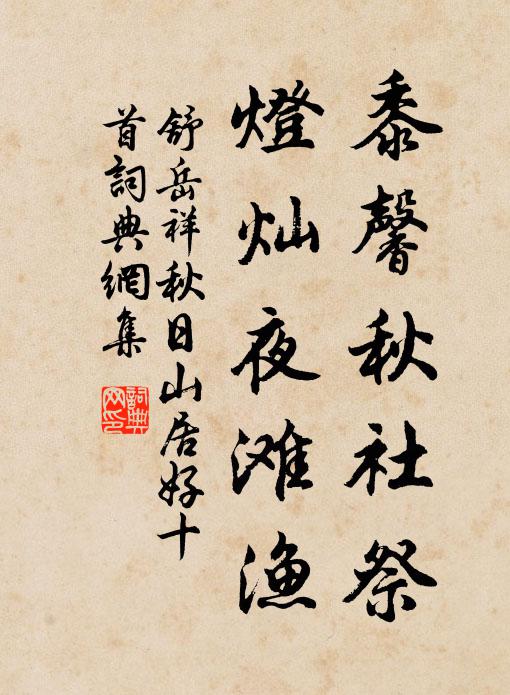 黍馨秋社祭
燈灿夜滩渔
舒岳祥秋日山居好十
首詞典網集
詞典
网印